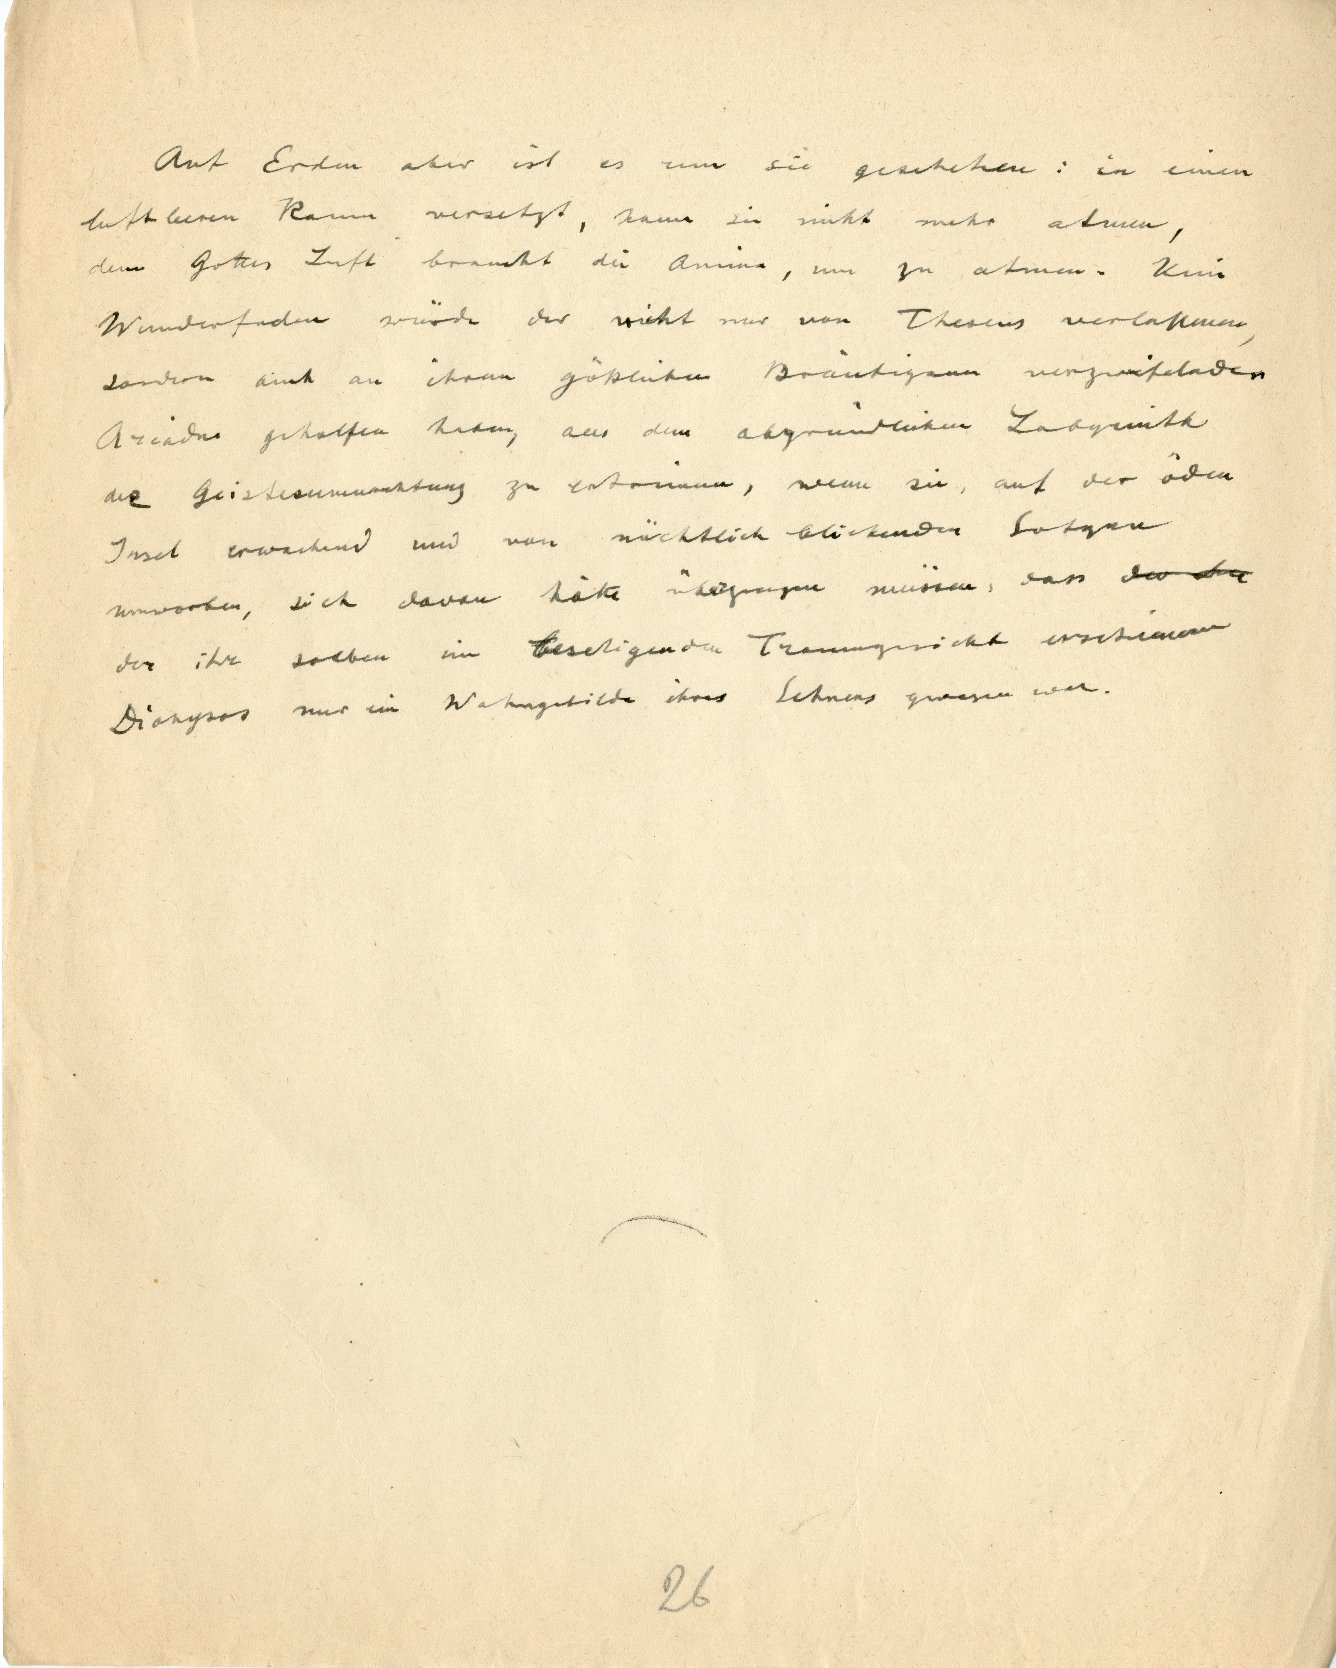 Auf Erden aber ist es um sie geschehen: in einen
luftleeren Raum versetzt, kann sie nicht mehr atmen,
denn Gottes Luft braucht die Anima, um zu atmen. Kein
Wunderfaden würde der nicht nur von Theseus verlassenen,
sondern auch an ihrem göttlichen Bräutigam verzweifelnden
Ariadne geholfen haben, aus dem abgründlichen Labyrinth
der Geistesumnachtung zu entrinnen, wenn sie, auf der öden
Insel erwachend und von nächtlich blickenden Satyrn
umworben, sich davon hätte überzeugen müssen, dass
der ihr soeben im beseligenden Traumgesicht erschienene
Dionysos nur ein Wahngebilde ihres Sehnens gewesen war.
26